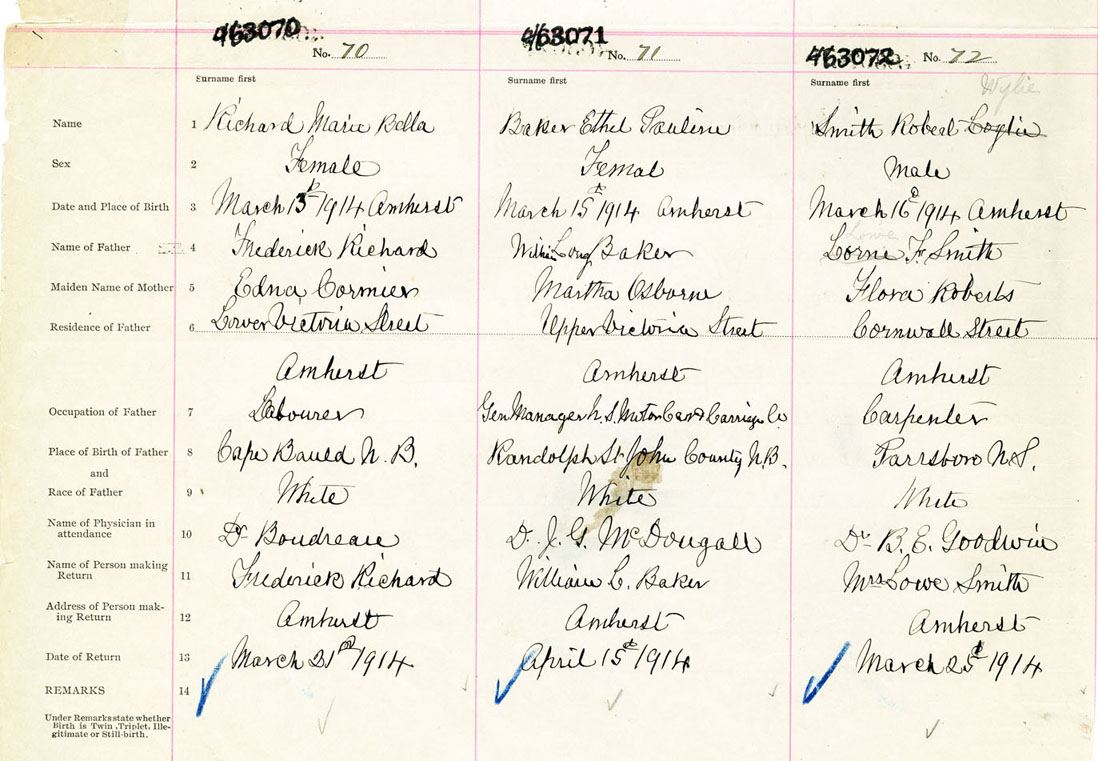 463070 No. 70 463071 No. 71 463072 No. 72
Surname first Surname first Surname first Wylie
Name 1 Richard Marie Bella Baker Ethel Pauline Smith Robert
Sex 2 Female Femal Male
Date and Place of Birth 3 March 13th 1914 Amherst March 15th 1914 Amherst March 16th 1914 Amherst
Lowe
Name of Father 4 Frederick Richard William Baker Lorne F. Smith
Maiden Name of Mother 5 Edna Cormier Martha Osborne Flora Roberts
Residence of Father 6 Lower Victoria Street Upper Victoria Street Cornwall Street
Amherst Amherst Amherst
Occupation of Father 7 Labourer Gen Manager N. S. Motor Car & Carriage Co Carpenter
Place of Birth of Father 8 Cape Bauld N. B. Randolph St John County N.B. Parrsboro N.S.
and
Race of Father 9 White White White
Name of Physician in
attendance 10 Dr Boudreau D. J. G. McDougall Dr B. E. Goodwin
Name of Person making
Return 11 Frederick Richard William C. Baker Mrs Lowe Smith
Address of Person mak-
ing Return 12 Amherst Amherst Amherst
Date of Return 13 March 21st 1914 April 15th 1914 March 25th 1914
REMARKS 14
Under Remarks state whether
Birth is Twin, Triplet, Ille-
gitimate or Still-birth.